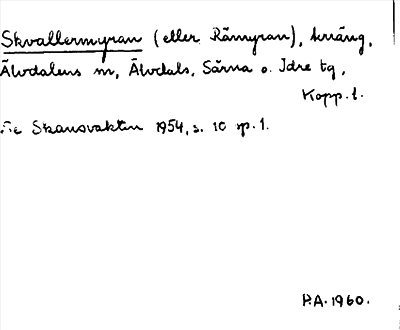 Skvallermyran (eller Råmyran), kräng,
Älvdalens sn, Älvdals, Särna o. Idre tg,
Kopp. l.
Se Skansvakten 1954, s. 10 sp. 1.
P.A. 1960.